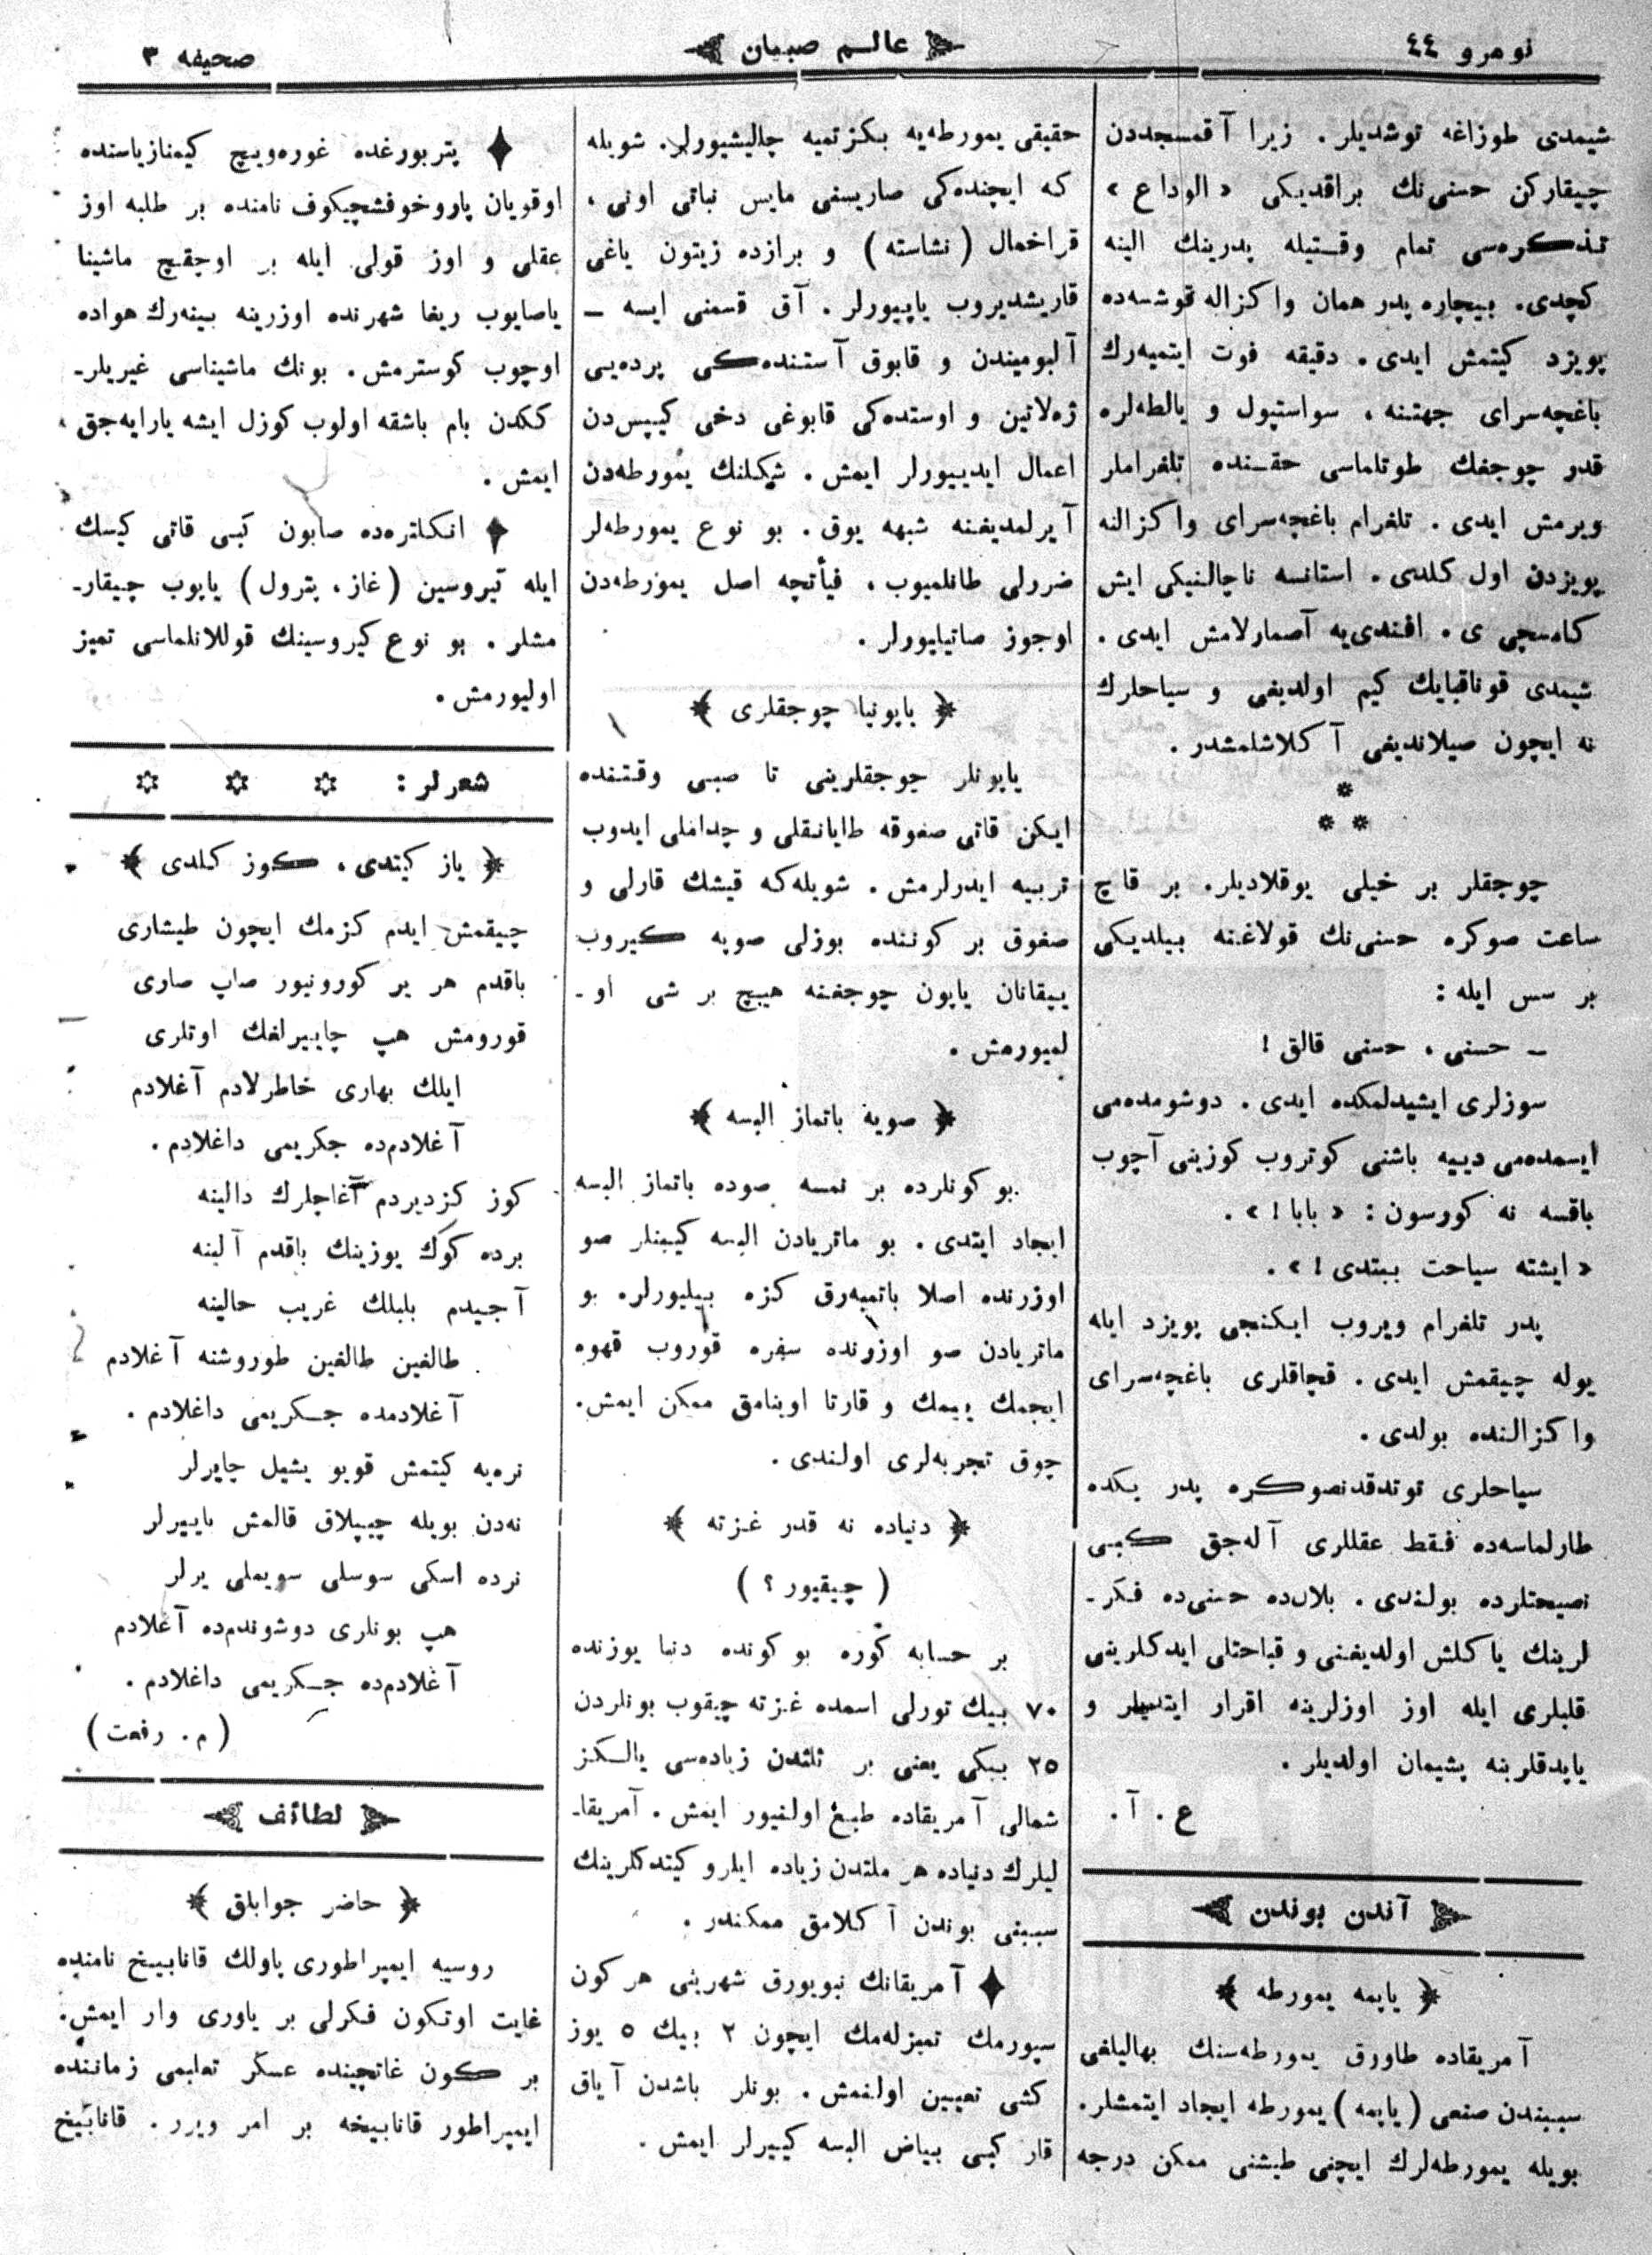 نومرو ٤٤
عالم صبیان
صحیفه ۳
شیمدی طوزاغه توشدیلر. زیرا آقمسجددن
چیقارکن حسنی‌نك براقدیکی «الوداع»
تذکره‌سی تمام وقتیله پدرینك الینه
کچدی. بیچاره پدر همان واکزاله قوشسه‌ده
پویزد کیتمش ایدی. دقیقه فوت ایتمیه‌رك
باغچه‌سرای جهتنه، سواستپول و یالطه‌لره
قدر چوجغك طوتلماسی حقنده تلغراملر
ویرمش ایدی. تلغرام باغچه‌سرای واکزالنه
پویزدن اول کلدی. استانسه ناچالنیکی ایش
کامسچی ی. افندی‌یه آصمارلامش ایدی.
شیمدی قوناقبایك کیم اولدیغی و سیاحلرك
نه ایچون صیلاندیغی آکلاشلمشدر.
*
* *
چوجقلر بر خیلی یوقلادیلر. بر قاچ
ساعت صوکره حسنی‌نك قولاغنه بیلدیکی
بر سس ایله:
ـ حسنی، حسنی قالق!
سوزلری ایشیدلمکده ایدی. دوشومده‌می
ایسمده‌می دییه باشنی کوتروب کوزینی آچوب
باقسه نه کورسون: «بابا!».
«ایشته سیاحت بیتدی!».
پدر تلغرام ویروب ایکنجی پویزد ایله
یوله چیقمش ایدی. قچاقلری باغچه‌سرای
واکزالنده بولدی.
سیاحلری توتدقدنصوکره پدر یکده
طارلماسه‌ده فقط عقللری آله‌جق کبی
نصیحتلرده بولندی. بلالده حسنی‌ده فکر-
لرینك یاکلش اولدیغنی و قباحتلی ایدکلرینی
قلبلری ایله اوز اوزلرینه اقرار ایتدیلر و
یاپدقلرینه پشیمان اولدیلر.
ع. آ.
آندن بوندن
﴿ یاپمه یمورطه ﴾
آمریقاده طاورق یمورطه‌سنك بهالیلغی
سببندن صنعی (یاپمه) یمورطه ایجاد ایتمشلر.
بویله یمورطه‌لرك ایچنی طیشنی ممکن درجه
حقیقی یمورطه‌یه بکزتمیه چالیشیورلر. شویله
که ایچنده‌کی صاریسنی مایس نباتی اونی،
قراخمال (نشاسته) و برازده زیتون یاغی
قاریشدیروب یاپیورلر. آق قسمنی ایسه ـ
آلبومیندن و قابوق آستنده‌کی پرده‌یی
ژه‌لاتین و اوستده‌کی قابوغی دخی کیپس‌دن
اعمال ایدییورلر ایمش. شیکلنك یمورطه‌دن
آیرلمدیغنه شبهه یوق. بو نوع یمورطه‌لر
ضررلی طانلمیوب، فیأتجه اصل یمورطه‌دن
اوجوز صاتیلیورلر.
﴿ یاپونیا چوجقلری ﴾
یاپونلر چوجقلرینی تا صبی وقتنده
ایکن قاتی صغوقه طایانقلی و چداملی ایدوب
تربیه ایدرلرمش. شویله‌که قیشك قارلی و
صغوق بر کوننده بوزلی صویه کیروب
ییقانان یاپون چوجغنه هیچ بر شی او-
لمیورمش.
﴿ صویه باتماز البسه ﴾
بو کونلرده بر نمسه صوده باتماز البسه
ایجاد ایتدی. بو ماتریادن البسه کیینلر صو
اوزرنده اصلا باتمیه‌رق کزه بیلیورلر. بو
ماتریادن صو اوزرنده سفره قوروب قهوه
ایچمك ییمك و قارتا اوینامق ممکن ایمش.
چوق تجربه‌لری اولندی.
﴿ دنیاده نه قدر غزته ﴾
( چیقیور؟ )
بر حسابه کوره بو کونده دنیا یوزنده
۷۰ بیك تورلی اسمده غزته چیقوب بونلردن
۲٥ بیکی یعنی بر ثلثدن زیاده‌سی یالکز
شمالی آمریقاده طبع اولنیور ایمش. آمریقا-
لیلرك دنیاده هر ملتدن زیاده ایلرو کیتدکلرینك
سببنی بوندن آکلامق ممکندر.
✦ آمریقانك نیویورق شهرینی هر کون
سپورمك تمیزله‌مك ایچون ۲ بیك ٥ یوز
کشی تعیین اولنمش. بونلر باشدن آیاق
قار کبی بیاض البسه کییرلر ایمش.
✦ پتربورغده غوره‌ویچ کیمنازیاسنده
اوقویان پاروخوفشچیکوف نامنده بر طلبه اوز
عقلی و اوز قولی ایله بر اوچقچ ماشینا
یاصایوب ریغا شهرنده اوزرینه بینه‌رك هواده
اوچوب کوسترمش. بونك ماشیناسی غیریلر-
ککدن بام باشقه اولوب کوزل ایشه یارایه‌جق
ایمش.
✦ انکلتره‌ده صابون کبی قاتی کیسك
ایله کیروسین (غاز، پترول) یاپوب چیقار-
مشلر. بو نوع کیروسینك قوللانلماسی تمیز
اولیورمش.
شعرلر:
﴿ یاز کیتدی، کوز کلدی ﴾
چیقمش ایدم کزمك ایچون طیشاری
باقدم هر یر کورونیور صاپ صاری
قورومش هپ چاییرلغك اوتلری
ایلك بهاری خاطرلادم آغلادم
آغلادم‌ده جکریمی داغلادم.
کوز کزدیردم آغاچلرك دالینه
برده کوك یوزینك باقدم آلینه
آجیدم بلبلك غریب حالینه
طالغین طالغین طوروشنه آغلادم
آغلادمده جکریمی داغلادم.
نره‌یه کیتمش قویو یشیل چایرلر
نه‌دن بویله چیپلاق قالمش باییرلر
نرده اسکی سوسلی سویملی یرلر
هپ بونلری دوشوندم‌ده آغلادم
آغلادم‌ده جکریمی داغلادم.
(م. رفعت)
لطائف
﴿ حاضر جوابلق ﴾
روسیه ایمپراطوری پاولك قانابیخ نامنده
غایت اوتکون فکرلی بر یاوری وار ایمش.
بر کون غاتچینده عسکر تعلیمی زماننده
ایمپراطور قانابیخه بر امر ویرر. قانابیخ